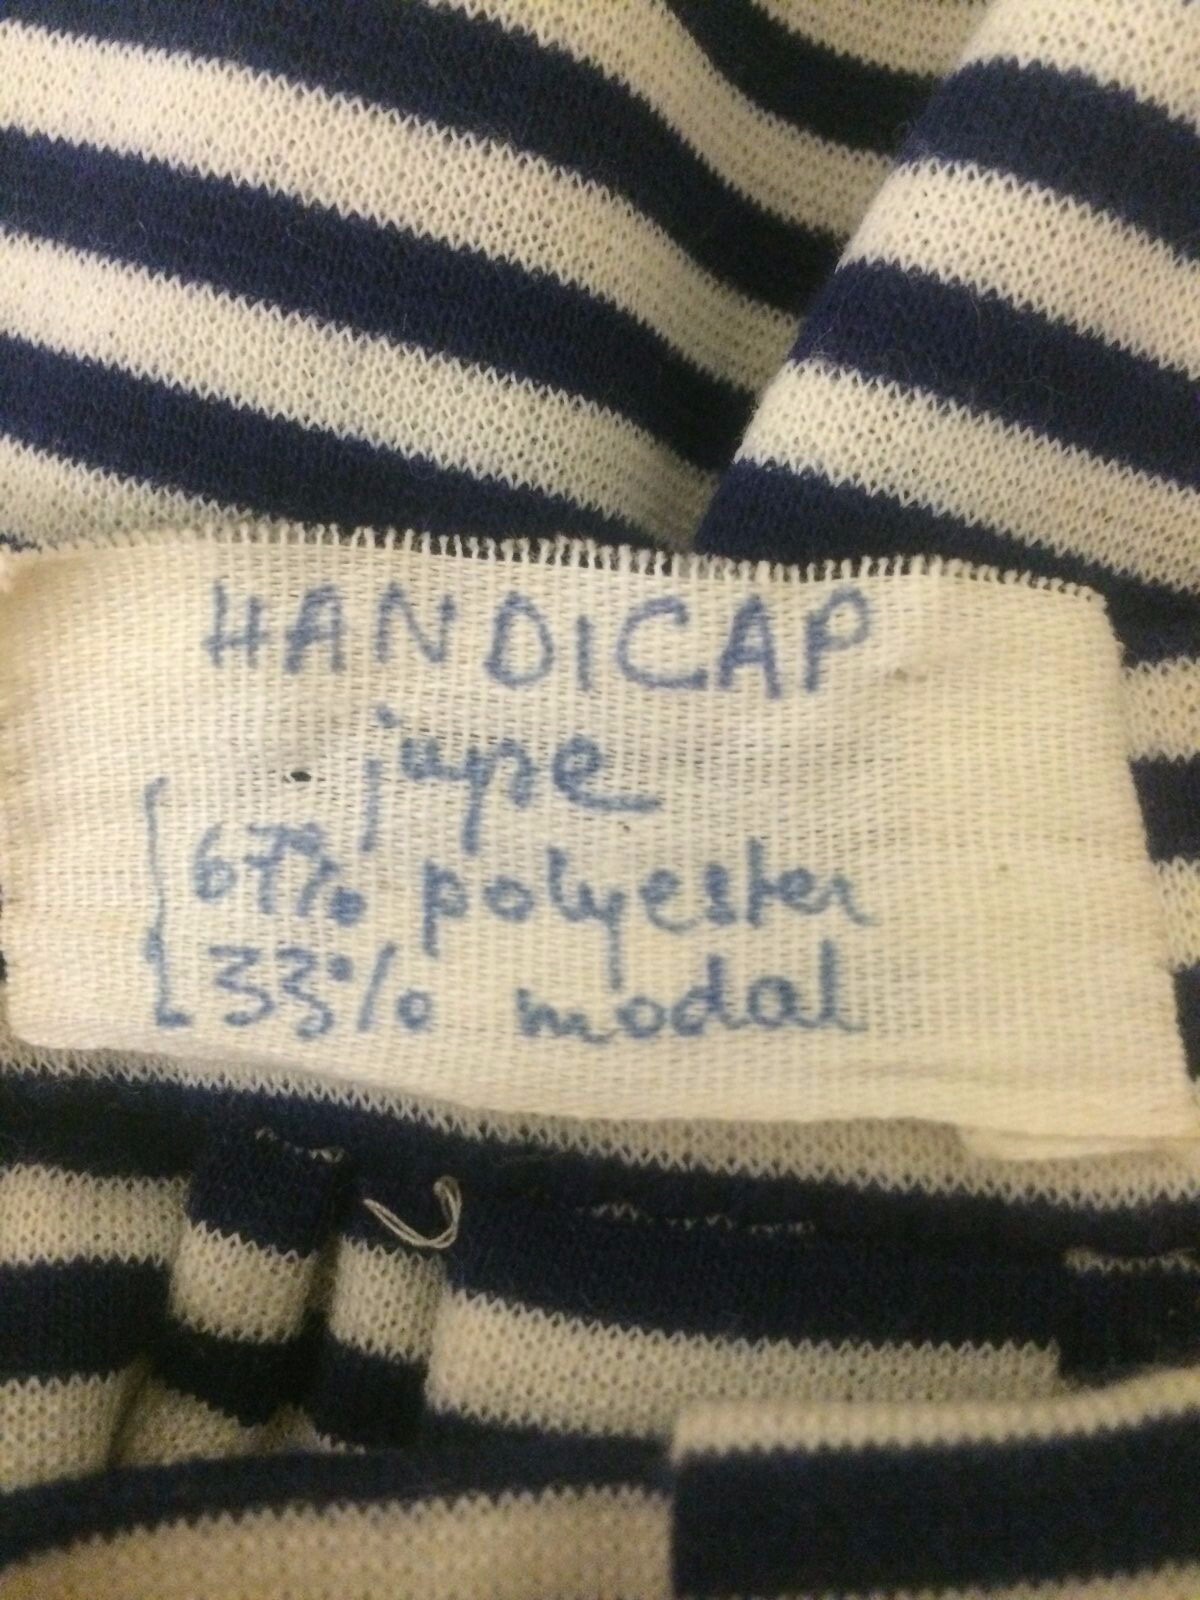 HANDICAP
jupe
67% polyester
33% modal